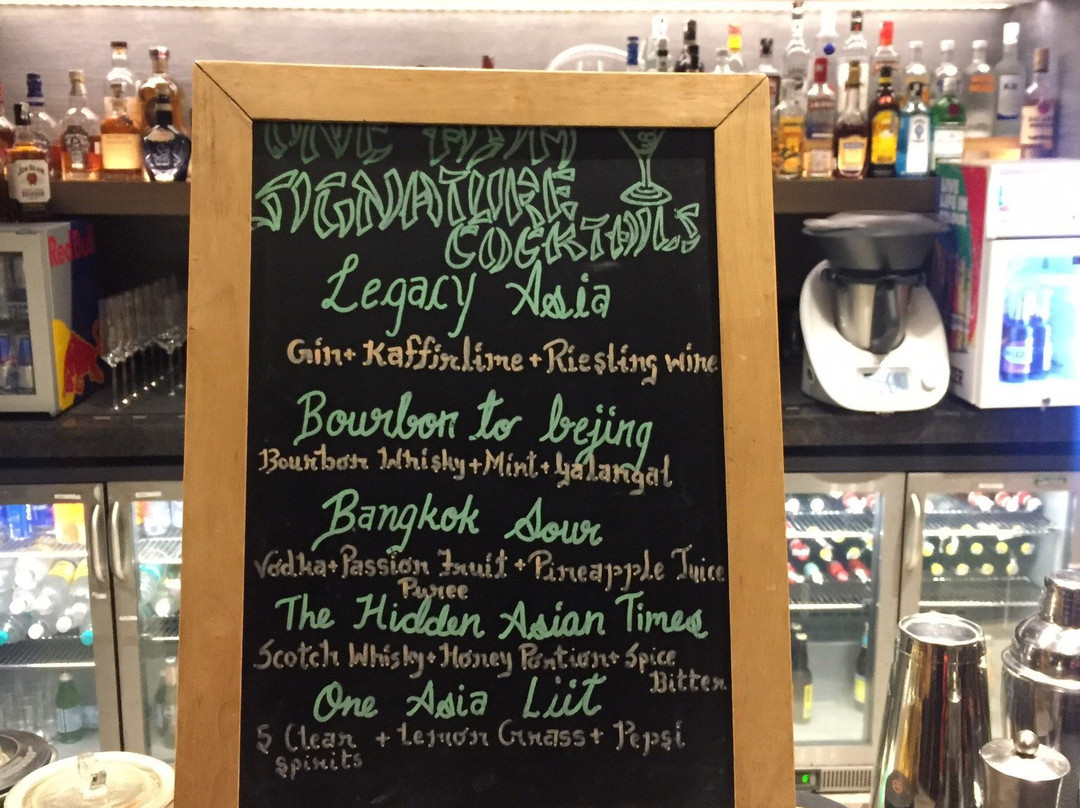 ONE ASIA
SIGNATURE
COCKTAILS
Legacy Asia
Gin+ Kaffirlime + Riesling wine
Bourbon to bejing
Bourbon Whisky+Mint+galangal
Bangkok Sour
Vodka+Passion Fruit + Pineapple Juice
Puree
The Hidden Asian Times
Scotch Whisky+Honey Portion+ Spice
Bitter
One Asia Liit
5 Clear + Lemon Grass+ Pepsi
spirits
Red Bull
JIM BEAM